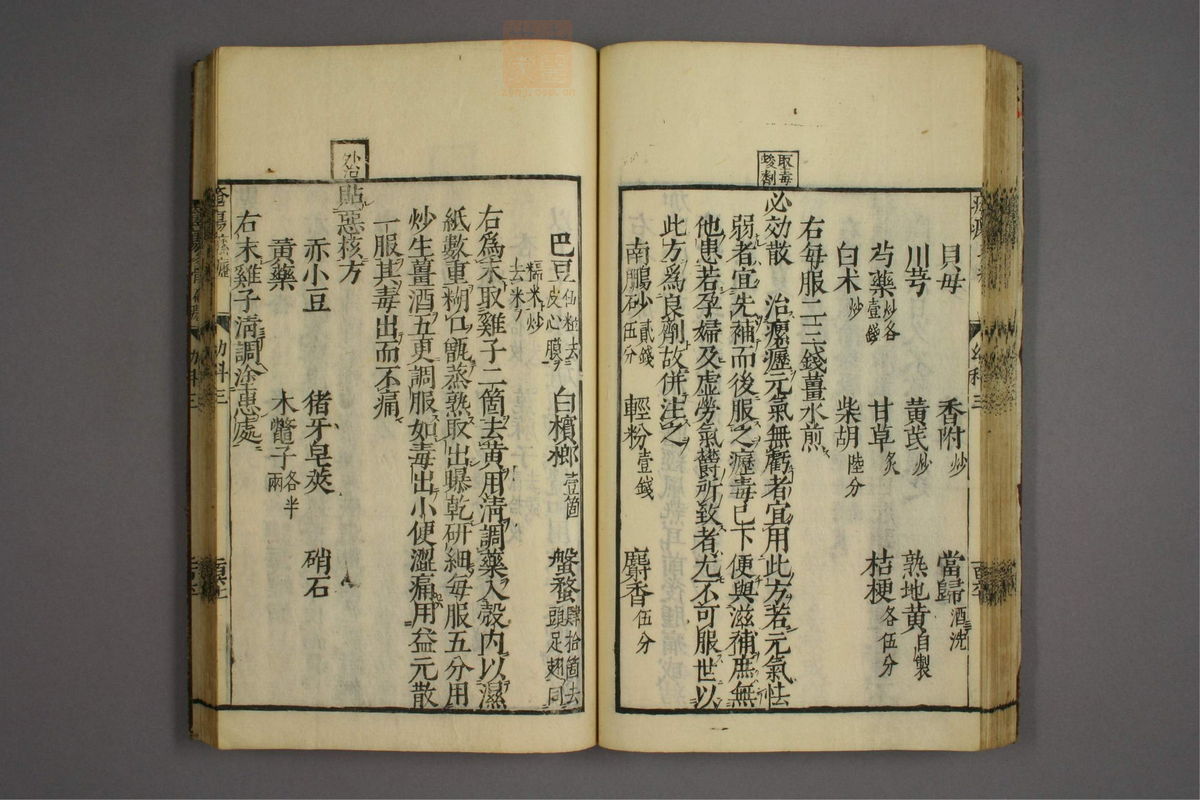 取毒
峻劑
貝毋 香附炒 當歸酒洗
川芎 黃芪炒 熟地黃自製
芍藥炒各壹錢 甘草炙 桔梗各伍分
白朮炒 柴胡陸分
右每服二三錢薑水煎
必効散 治瘰癧元氣無虧者宜用此方若元氣怯
弱者宜先補而後服之癧毒已下便與滋補庶無
他患若孕婦及虛勞氣欝所致者尤不可服世以
此方爲良劑故併注之
南鵬砂貳錢伍分 輕粉壹錢 麝香伍分
巴豆伍粒去皮心膜 白檳榔壹箇 盤蝥肆拾箇去頭足翅同
糯米炒去米
右爲末取雞子二箇去黃用淸調藥入殼內以濕
紙數重糊口甑蒸熟取出曝乾研細每服五分用
炒生薑酒五更調服如毒出小便澀痛用益元散
一服其毒出而不痛
外治
貼惡核方
赤小豆 猪牙皂莢 硝石
黃藥 木鼈子各半兩
右末雞子淸調塗患處
幼科三